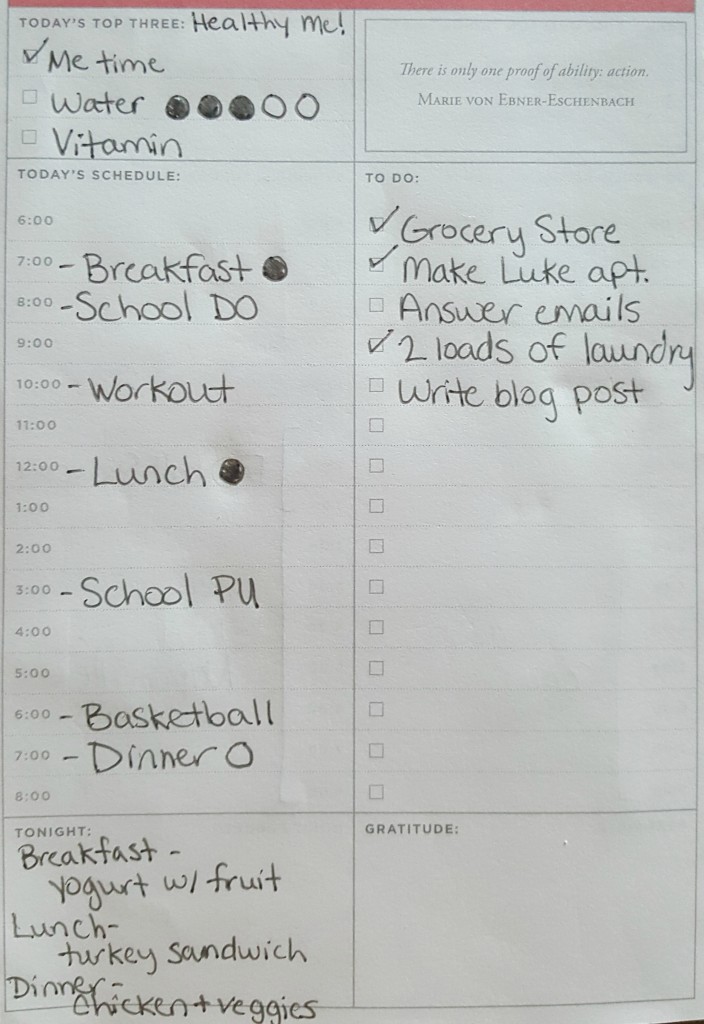 TODAY'S TOP THREE: Healthy me!
Me time
Water
Vitamin
There is only one proof of ability: action.
MARIE VON EBNER-ESCHENBACH
TODAY'S SCHEDULE:
6:00
7:00 - Breakfast
8:00 - School DO
9:00
10:00 - Workout
11:00
12:00 - Lunch
1:00
2:00
3:00 - School PU
4:00
5:00
6:00 - Basketball
7:00 - Dinner
8:00
TO DO:
Grocery Store
Make Luke apt.
Answer emails
2 loads of laundry
Write blog post
TONIGHT:
Breakfast -
yogurt w/ fruit
Lunch-
turkey sandwich
Dinner-
Chicken + veggies
GRATITUDE: